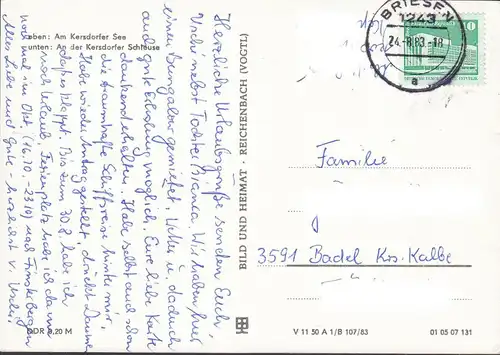 oben: Am Kersdorfer See
unten: An der Kersdorfer Schleuse
Herzliche Urlaubsgrüße senden Euch
Uschi nebst Tochter Bianca. Wir haben hier
einen Bungalow gemietet. Urlaub dadurch
auch gute Erholung möglich. Eure liebe Karte
dankend erhalten. Habe selbst auch schon
die traumhafte Schiffsreise hinter mir.
Habe wieder Antrag gestellt, drückt Daumen
daß es klappt. Bis zum 30.8. habe ich
noch Urlaub. Ferienplatz habe ich da
noch mal im Okt. (16.10.-23.10) nach Finsterbergen
Alles Liebe und Gute - herzlichst v. Uschi
DDR 0,20 M
BILD UND HEIMAT · REICHENBACH (VOGTL)
BRIESEN
1243
24.-8.83.-18
a
10
Familie
3591 Badel Krs. Kalbe
V 11 50 A 1/B 107/83
01 05 07 131